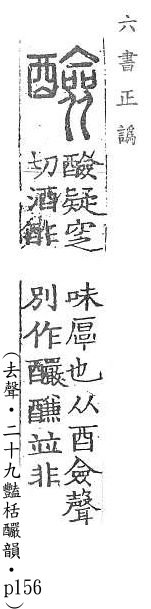 六書正譌
醶疑窆
切酒酢
味厚也从酉僉聲
別作釅並非
(去聲．二十九豔栝釅韻．p156)